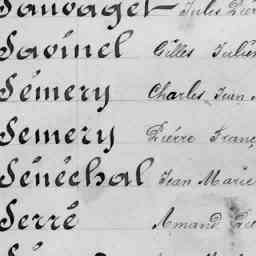 Sauvaget Jules
Savinel Gilles Julien
Sémery Charles Jean
Semery Pierre Franç
Sénéchal Jean Marie
Serré Amand